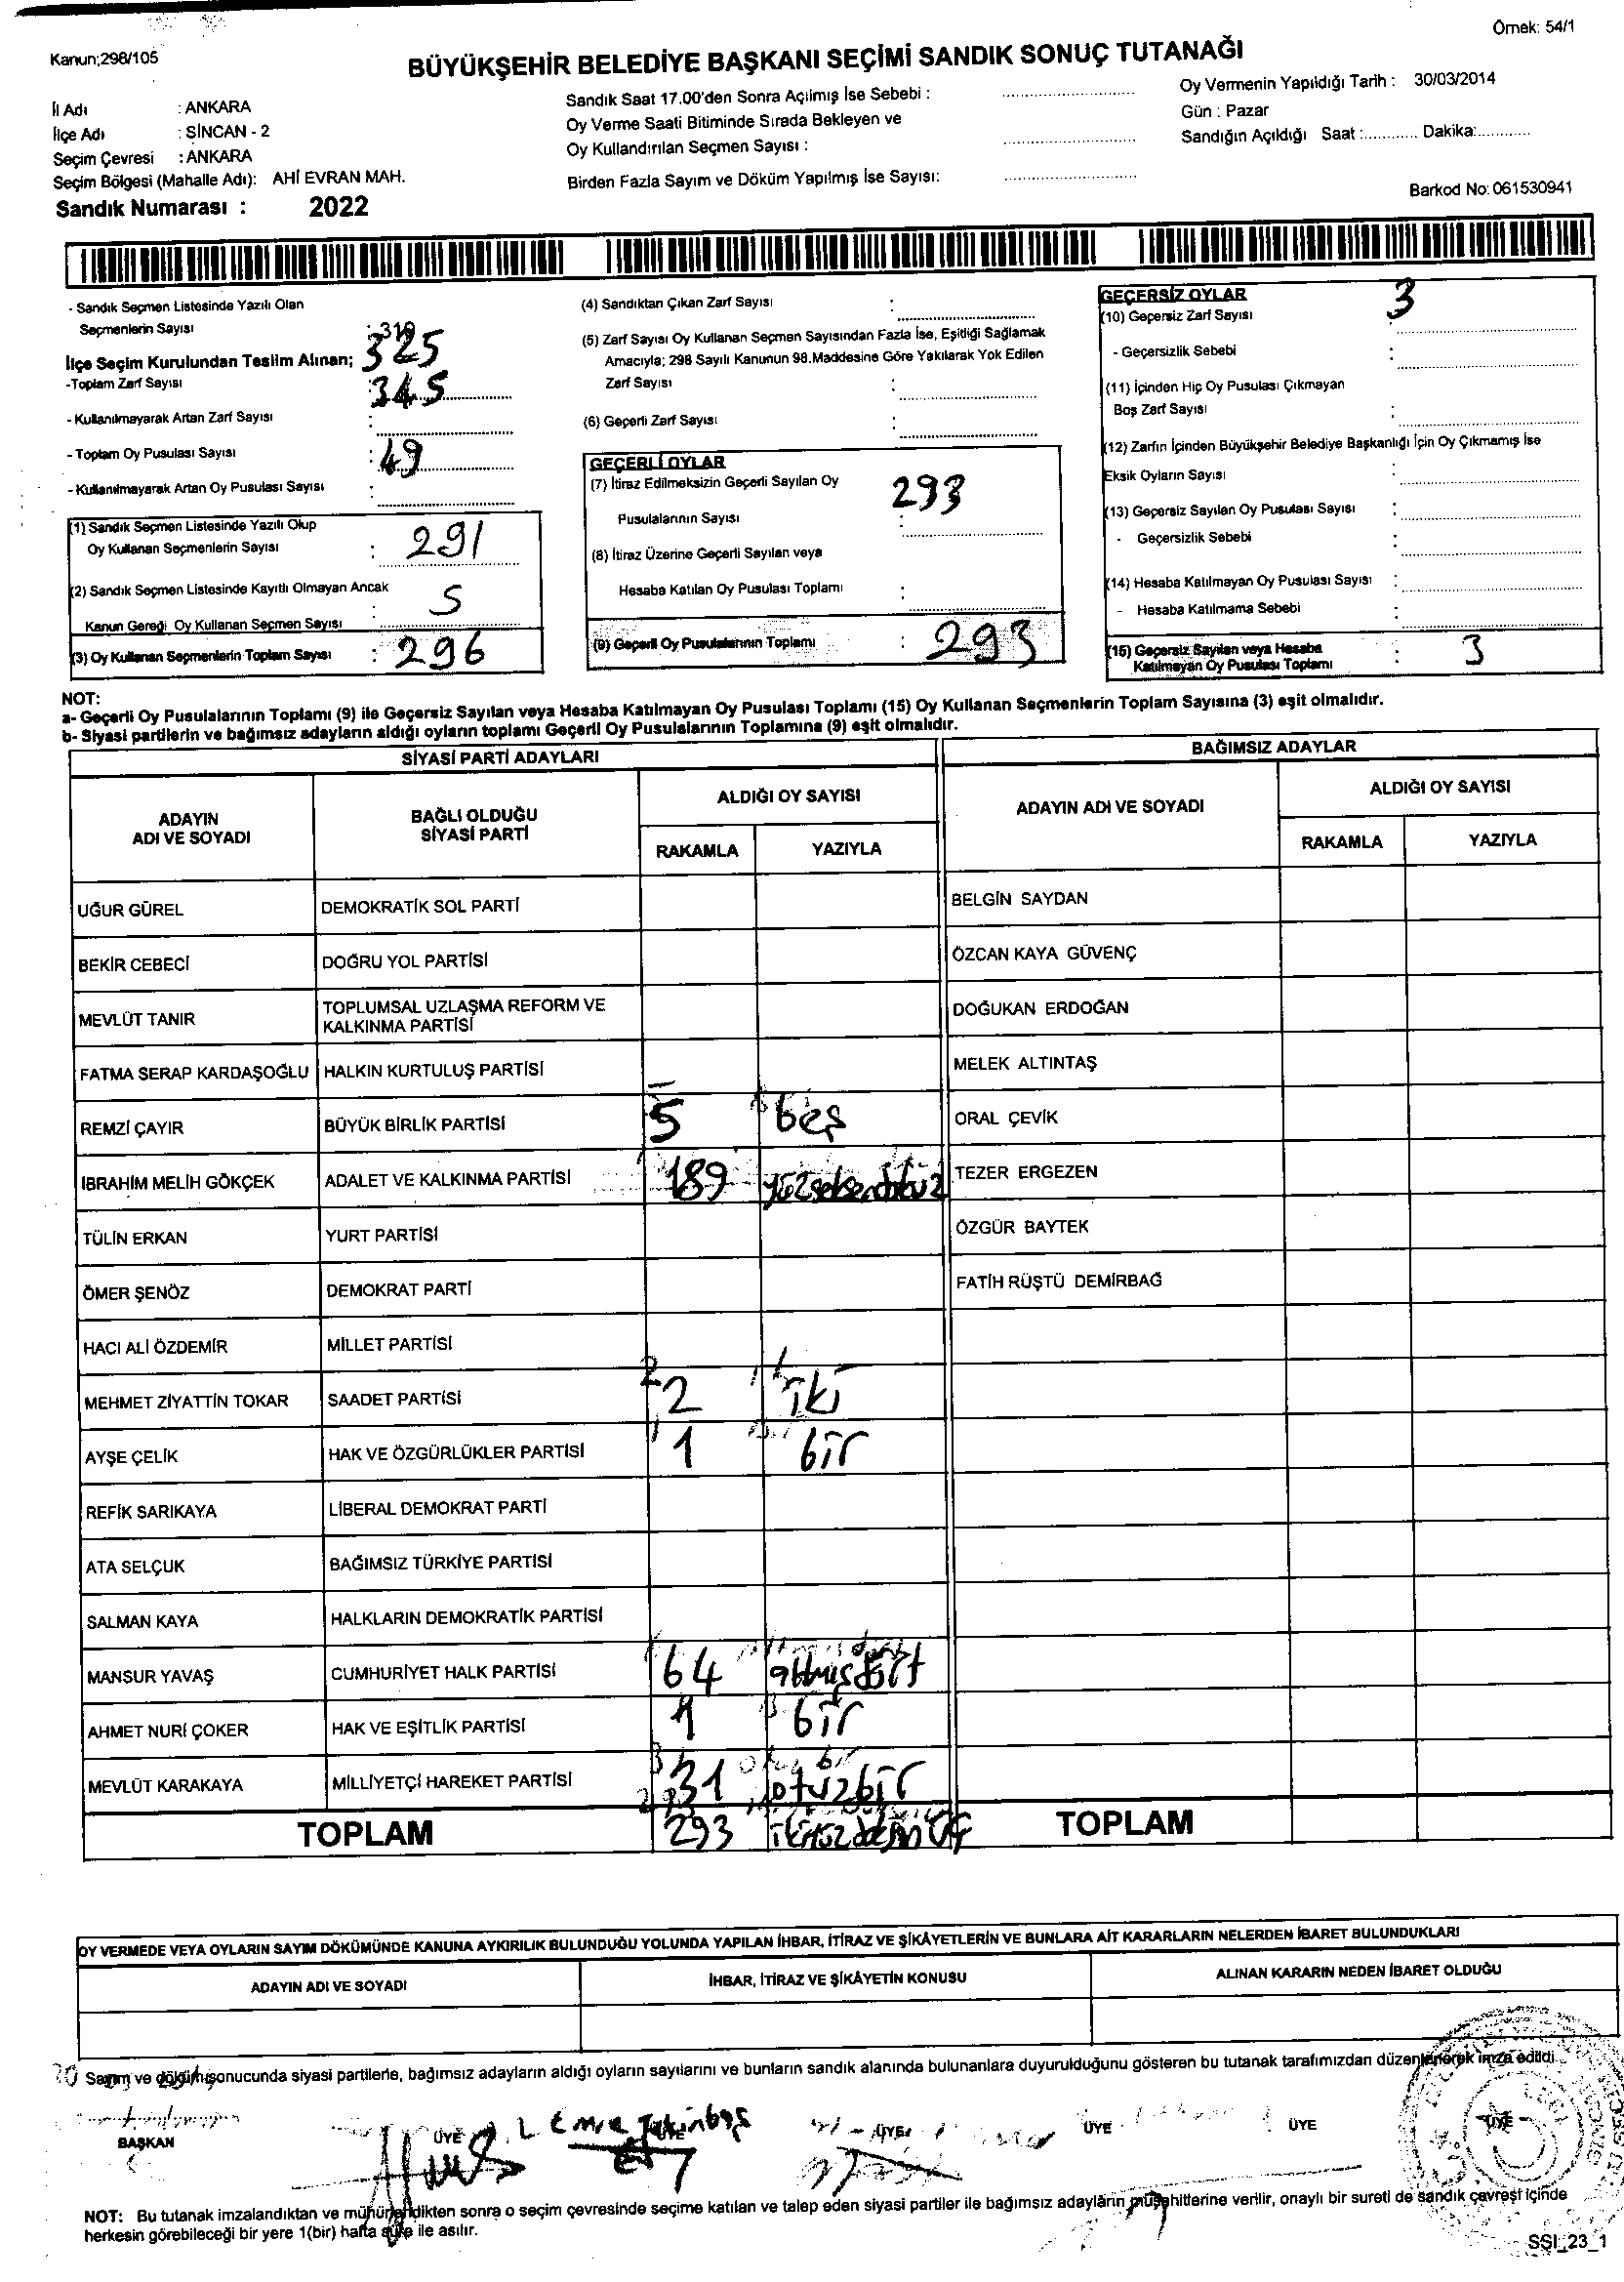 Örnek: 54/1
Kanun;298/105
BÜYÜKŞEHİR BELEDİYE BAŞKANI SEÇİMİ SANDIK SONUÇ TUTANAĞI
İl Adı : ANKARA
İlçe Adı : SİNCAN - 2
Seçim Çevresi : ANKARA
Seçim Bölgesi (Mahalle Adı): AHİ EVRAN MAH.
Sandık Numarası : 2022
Sandık Saat 17.00'den Sonra Açılmış İse Sebebi :
Oy Verme Saati Bitiminde Sırada Bekleyen ve
Oy Kullandırılan Seçmen Sayısı :
Birden Fazla Sayım ve Döküm Yapılmış İse Sayısı:
Oy Vermenin Yapıldığı Tarih : 30/03/2014
Gün : Pazar
Sandığın Açıldığı Saat :........... Dakika:...........
Barkod No: 061530941
- Sandık Seçmen Listesinde Yazılı Olan
Seçmenlerin Sayısı : 319
İlçe Seçim Kurulundan Teslim Alınan; 325
-Toplam Zarf Sayısı : 345
- Kullanılmayarak Artan Zarf Sayısı :
- Toplam Oy Pusulası Sayısı : 49
- Kullanılmayarak Artan Oy Pusulası Sayısı :
(1) Sandık Seçmen Listesinde Yazılı Olup
Oy Kullanan Seçmenlerin Sayısı : 291
(2) Sandık Seçmen Listesinde Kayıtlı Olmayan Ancak
Kanun Gereği Oy Kullanan Seçmen Sayısı : 5
(3) Oy Kullanan Seçmenlerin Toplam Sayısı : 296
(4) Sandıktan Çıkan Zarf Sayısı :
(5) Zarf Sayısı Oy Kullanan Seçmen Sayısından Fazla İse, Eşitliği Sağlamak
Amacıyla; 298 Sayılı Kanunun 98.Maddesine Göre Yakılarak Yok Edilen
Zarf Sayısı :
(6) Geçerli Zarf Sayısı :
GEÇERLİ OYLAR
(7) İtiraz Edilmeksizin Geçerli Sayılan Oy
Pusulalarının Sayısı : 293
(8) İtiraz Üzerine Geçerli Sayılan veya
Hesaba Katılan Oy Pusulası Toplamı :
(9) Geçerli Oy Pusulalarının Toplamı : 293
GEÇERSİZ OYLAR
(10) Geçersiz Zarf Sayısı 3
- Geçersizlik Sebebi :
(11) İçinden Hiç Oy Pusulası Çıkmayan
Boş Zarf Sayısı :
(12) Zarfın İçinden Büyükşehir Belediye Başkanlığı İçin Oy Çıkmamış İse
Eksik Oyların Sayısı :
(13) Geçersiz Sayılan Oy Pusulası Sayısı :
- Geçersizlik Sebebi :
(14) Hesaba Katılmayan Oy Pusulası Sayısı :
- Hesaba Katılmama Sebebi :
(15) Geçersiz Sayılan veya Hesaba
Katılmayan Oy Pusulası Toplamı : 3
NOT:
a- Geçerli Oy Pusulalarının Toplamı (9) ile Geçersiz Sayılan veya Hesaba Katılmayan Oy Pusulası Toplamı (15) Oy Kullanan Seçmenlerin Toplam Sayısına (3) eşit olmalıdır.
b- Siyasi partilerin ve bağımsız adayların aldığı oyların toplamı Geçerli Oy Pusulalarının Toplamına (9) eşit olmalıdır.
SİYASİ PARTİ ADAYLARI
ADAYIN ADI VE SOYADI
BAĞLI OLDUĞU SİYASİ PARTİ
ALDIĞI OY SAYISI
RAKAMLA YAZIYLA
UĞUR GÜREL DEMOKRATİK SOL PARTİ
BEKİR CEBECİ DOĞRU YOL PARTİSİ
MEVLÜT TANIR TOPLUMSAL UZLAŞMA REFORM VE KALKINMA PARTİSİ
FATMA SERAP KARDAŞOĞLU HALKIN KURTULUŞ PARTİSİ
REMZİ ÇAYIR BÜYÜK BİRLİK PARTİSİ 5 beş
İBRAHİM MELİH GÖKÇEK ADALET VE KALKINMA PARTİSİ 189 yüzseksendokuz
TÜLİN ERKAN YURT PARTİSİ
ÖMER ŞENÖZ DEMOKRAT PARTİ
HACI ALİ ÖZDEMİR MİLLET PARTİSİ
MEHMET ZİYATTİN TOKAR SAADET PARTİSİ 2 iki
AYŞE ÇELİK HAK VE ÖZGÜRLÜKLER PARTİSİ 1 bir
REFİK SARIKAYA LİBERAL DEMOKRAT PARTİ
ATA SELÇUK BAĞIMSIZ TÜRKİYE PARTİSİ
SALMAN KAYA HALKLARIN DEMOKRATİK PARTİSİ
MANSUR YAVAŞ CUMHURİYET HALK PARTİSİ 64 altmışdört
AHMET NURİ ÇOKER HAK VE EŞİTLİK PARTİSİ 1 bir
MEVLÜT KARAKAYA MİLLİYETÇİ HAREKET PARTİSİ 31 otuzbir
TOPLAM 293
BAĞIMSIZ ADAYLAR
ADAYIN ADI VE SOYADI
ALDIĞI OY SAYISI
RAKAMLA YAZIYLA
BELGİN SAYDAN
ÖZCAN KAYA GÜVENÇ
DOĞUKAN ERDOĞAN
MELEK ALTINTAŞ
ORAL ÇEVİK
TEZER ERGEZEN
ÖZGÜR BAYTEK
FATİH RÜŞTÜ DEMİRBAĞ
TOPLAM
OY VERMEDE VEYA OYLARIN SAYIM DÖKÜMÜNDE KANUNA AYKIRILIK BULUNDUĞU YOLUNDA YAPILAN İHBAR, İTİRAZ VE ŞİKÂYETLERİN VE BUNLARA AİT KARARLARIN NELERDEN İBARET BULUNDUKLARI
ADAYIN ADI VE SOYADI İHBAR, İTİRAZ VE ŞİKÂYETİN KONUSU ALINAN KARARIN NEDEN İBARET OLDUĞU
Sayım ve dökümü sonucunda siyasi partilerle, bağımsız adayların aldığı oyların sayılarını ve bunların sandık alanında bulunanlara duyurulduğunu gösteren bu tutanak tarafımızdan düzenlenerek imza edildi.
BAŞKAN ÜYE ÜYE ÜYE ÜYE ÜYE ÜYE
NOT: Bu tutanak imzalandıktan ve mühürlendikten sonra o seçim çevresinde seçime katılan ve talep eden siyasi partiler ile bağımsız adayların müşahitlerine verilir, onaylı bir sureti de sandık çevresi içinde
herkesin görebileceği bir yere 1(bir) hafta süre ile asılır.
SSI_23_1